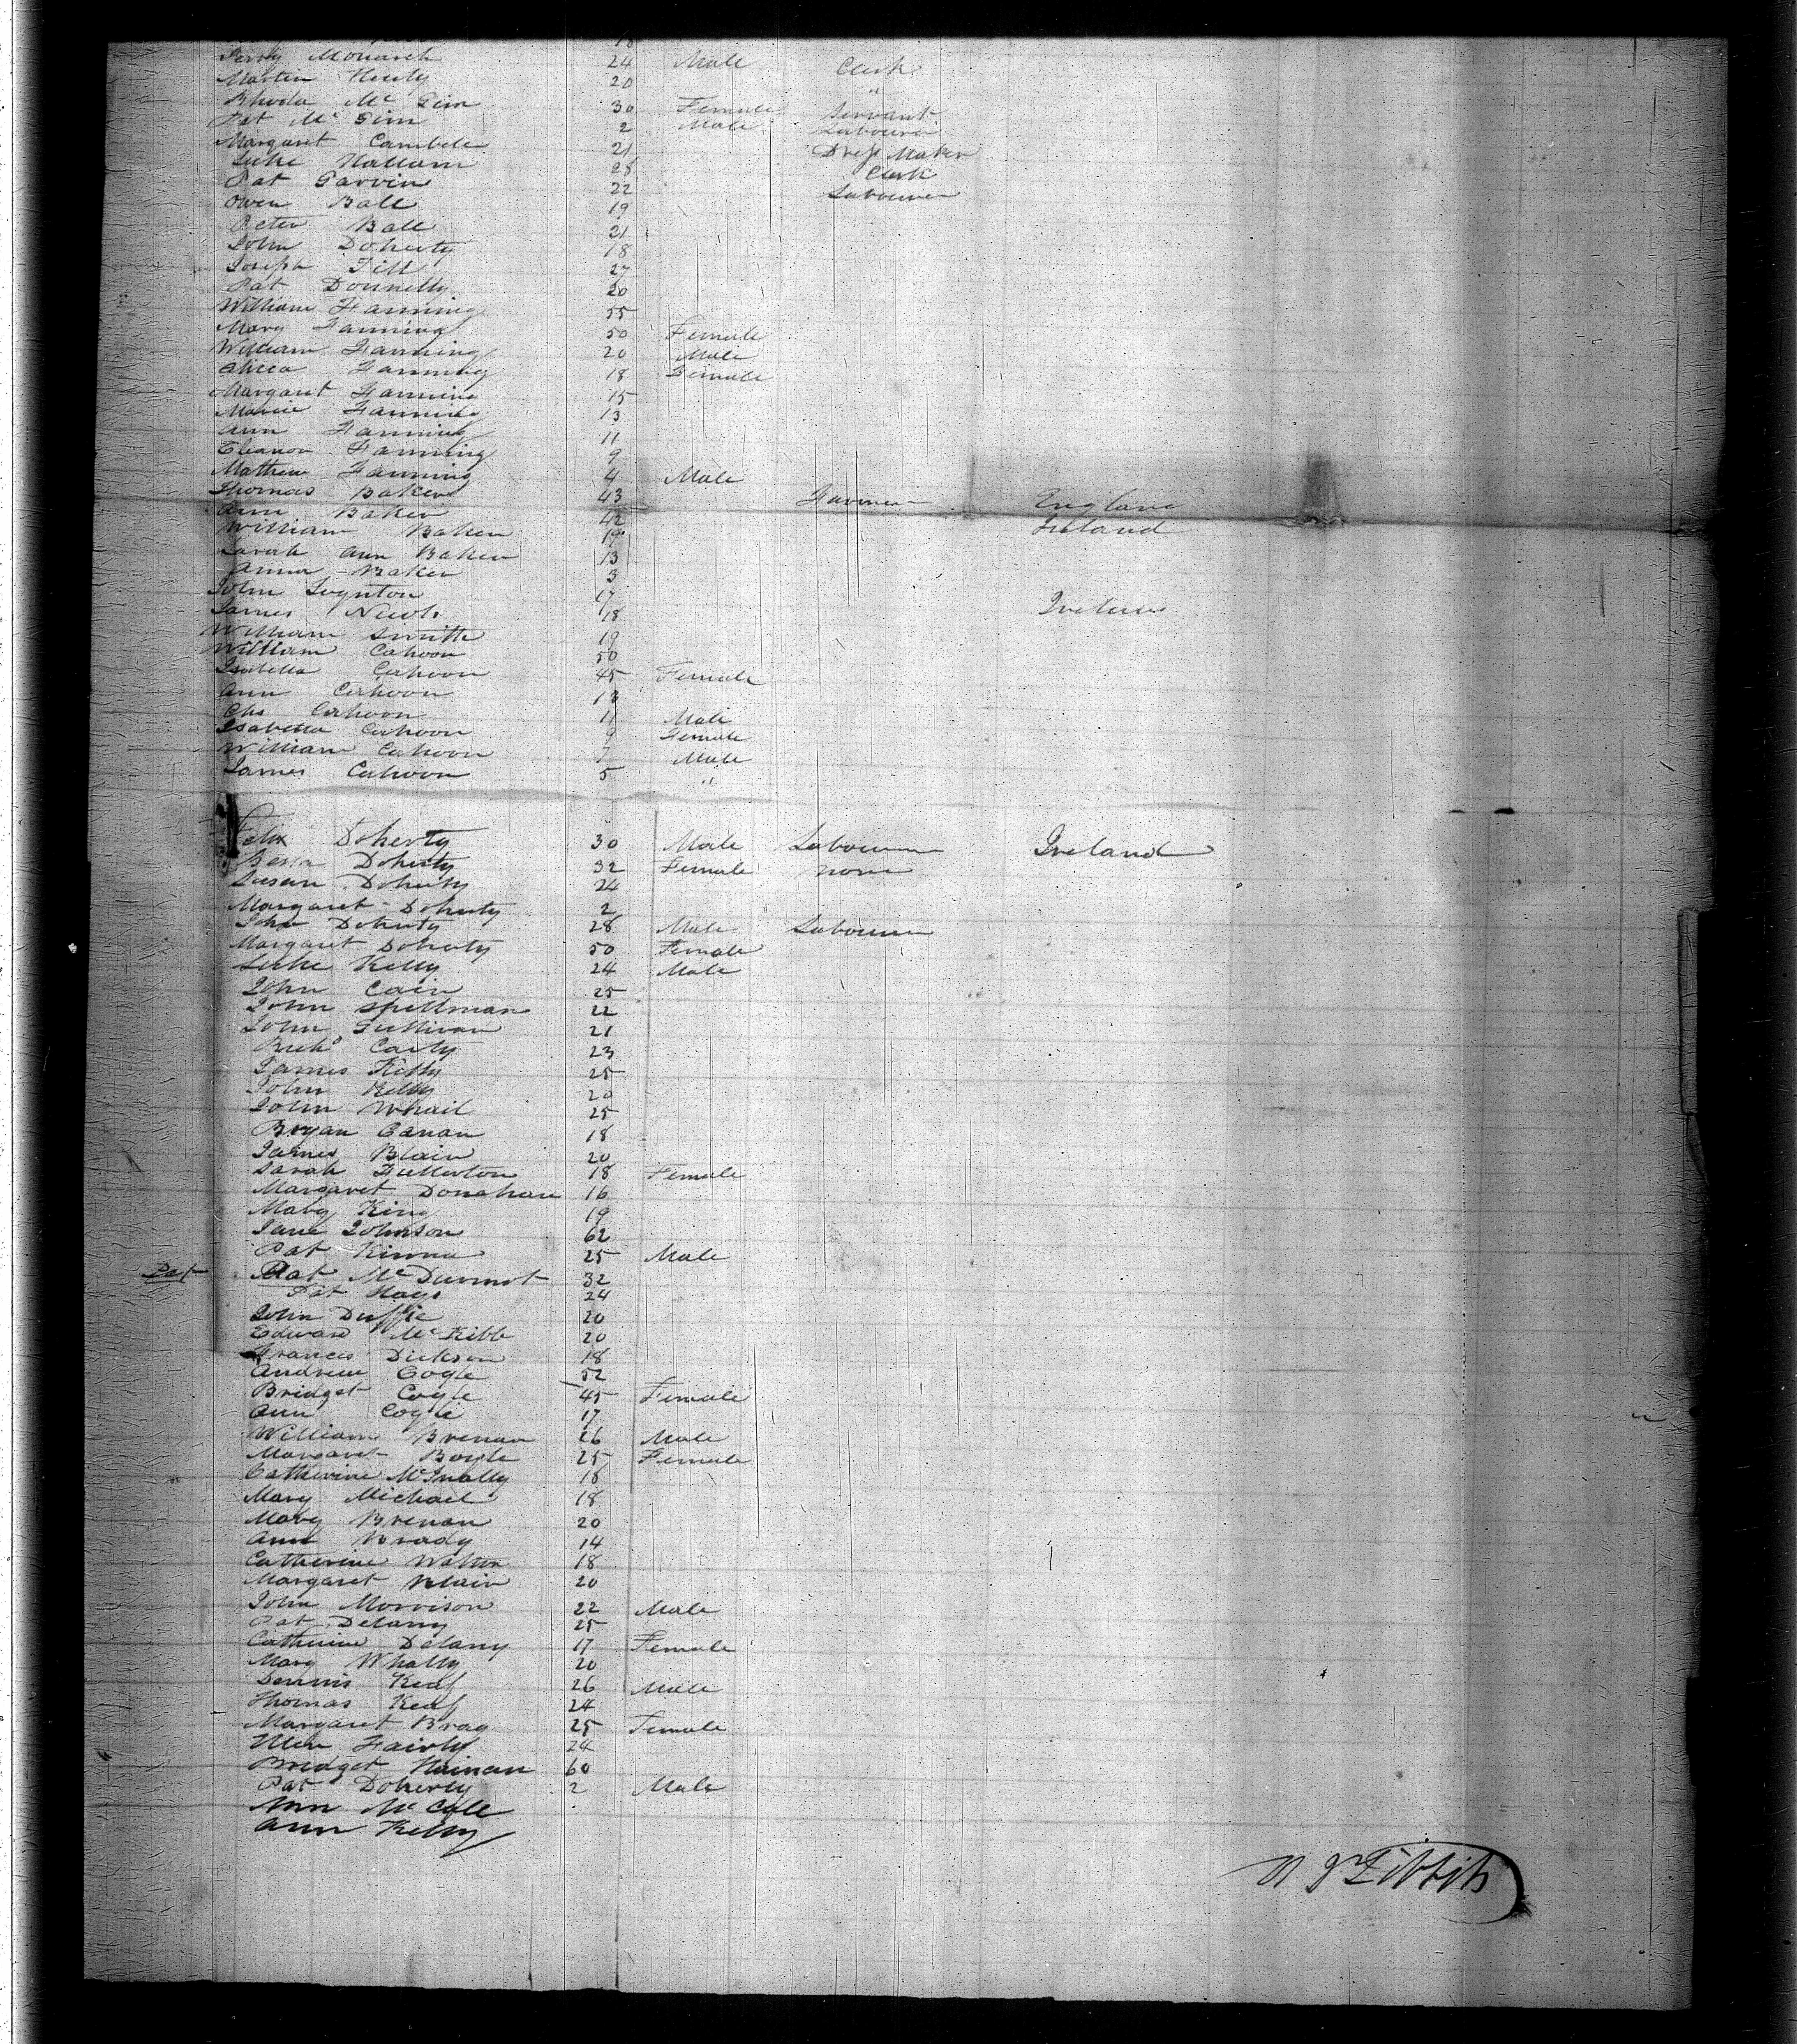 18
Perry Monarch 24 Male Clerk
Martin 20 "
Rhoda Mc Girr 30 Female Servant
Pat Mc Girr 2 Male Labourer
Margaret Cambele 21 Dress Maker
Luke Hallam 28 Clerk
Pat Garvin 22 Labourer
Owen Ball 19
Peter Ball 21
John Doherty 18
Joseph Till 27
Pat Donnelly 20
William Fanning 55
Mary Fanning 50 Female
William Fanning 20 Male
Fanning 18 Female
Margaret Fanning 15
Fanning 13
Ann Fanning 11
Eleanor Fanning 9
Mathew Fanning 4 Male
Thomas Baker 43 Farmer England
Ann Baker 42 Ireland
William Baker 19
Sarah Ann Baker 13
Anna Baker 3
John 17
James 18 Ireland
William Smith 19
William Cahoon 50
Isabella Cahoon 45 Female
Ann Cahoon 13
Chs Cahoon 11 Male
Isabella Cahoon 9 Female
William Cahoon 7 Male
James Cahoon 5 "
Felix Doherty 30 Male Labourer Ireland
Doherty 32 Female none
Susan Doherty 24
Margaret Doherty 2
John Doherty 28 Male Labourer
Margaret Doherty 50 Female
Luke Kelly 24 Male
John Cain 25
John Spellman 22
John Sullivan 21
Carty 23
James Kelly 25
John Kelly 20
John Whail 25
Bryan Canan 18
James Blain 20
Sarah Fullerton 18 Female
Margaret Donahan 16
Mary King 19
Jane Johnson 62
Pat 25 Male
Pat Pat Mc Durmot 32
Pat Hays 24
John Duffie 20
Edward Mc Kibb 20
Frances Dickson 18
Andrew Cogle 52
Bridget Cogle 45 Female
Ann Cogle 17
William Brenan 26 Male
Margaret Boyle 25 Female
Catherine McInally 18
Mary Michael 18
Mary Brenan 20
Ann Brady 14
Catherine Walton 18
Margaret Blain 20
John Morrison 22 Male
Pat Delany 25
Catherine Delany 17 Female
Mary Whally 20
Dennis Keaf 26 Male
Thomas Keaf 24
Margaret Bray 25 Female
Ellen Fairly 24
Bridget 60
Pat Doherty 2 Male
Ann Mc Cale
Ann Kelly
Tibbits